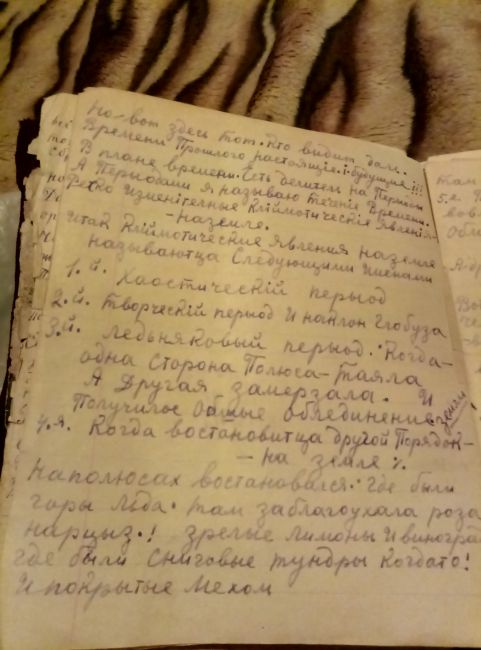 Но-вот здесь тот. Кто видит дали.
Времени Прошлого настоящіе. і будущие!!!
В плане времени. Есть делители на Перыоды
А Перыодами я называю течаніе Времени.
Резко Изменітельные Клімотическіе Явленія-
-Наземле.
Итак Клімотические Явления наземле
называютца Следующими именами
1.й. Хаостическій перыод
2.й. творческій перыод И наклон Глобуза
3.й. Ледьняковый перыод. Когда-
одна сторона Полюса-таяла
А Другая замерзала. И
Получилос Общые обледининие земли
4.я. Когда востановитца другой Порядок-
-на земле
Наполюсах востановался: Где были
горы льда. там заблагоухала роза
нарцыз.! зрелые лимоны И виноград
где были сниговые тундры когдато!
И покрытые мехом
там
5.е.